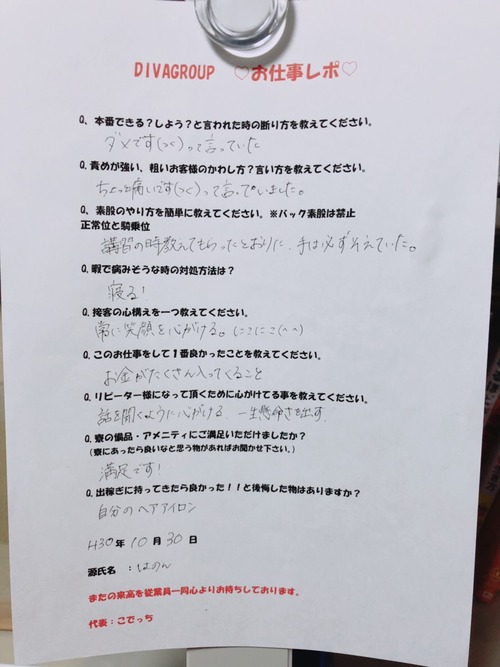 DIVAGROUP ♡お仕事レポ♡
Q、本番できる？しよう？と言われた時の断り方を教えてください。
ダメです(>_<)って言っていた
Q. 責めが強い、粗いお客様のかわし方？言い方を教えてください。
ちょっと痛いです(>_<)って言っていました。
Q、素股のやり方を簡単に教えてください。※バック素股は禁止
正常位と騎乗位
講習の時教えてもらったとおりに、手は必ずそえていた。
Q. 暇で病みそうな時の対処方法は？
寝る！
Q. 接客の心構えを一つ教えてください。
常に笑顔を心がける。(ニコニコ(^^)
Q. このお仕事をして１番良かったことを教えてください。
お金がたくさん入ってくること
Q. リピーター様になって頂くために心がけてる事を教えてください。
話を聞くように心がける 一生懸命さを出す
Q. 寮の備品・アメニティにご満足いただけましたか？
（寮にあったら良いなと思う物があればお聞かせ下さい。）
満足です！
Q. 出稼ぎに持ってきたら良かった！！と後悔した物はありますか？
自分のヘアアイロン
H30 年 10 月 30 日
源氏名 ：はのん
またの来高を従業員一同心よりお待ちしております。
代表：こでっち